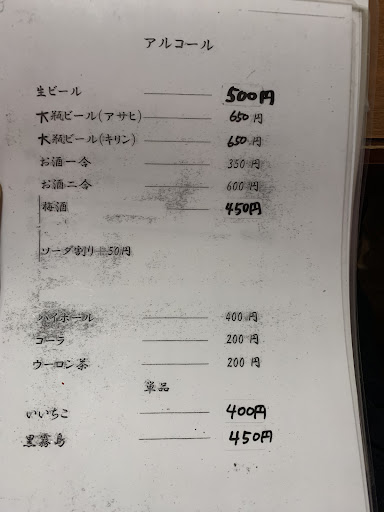 アルコール
生ビール ——— 500円
大瓶ビール(アサヒ) ——— 650円
大瓶ビール(キリン) ——— 650円
お酒一合 ——— 350円
お酒二合 ——— 600円
梅酒 ——— 450円
ソーダ割り +50円
ハイボール ——— 400円
コーラ ——— 200円
ウーロン茶 ——— 200円
単品
いいちこ ——— 400円
黒霧島 ——— 450円